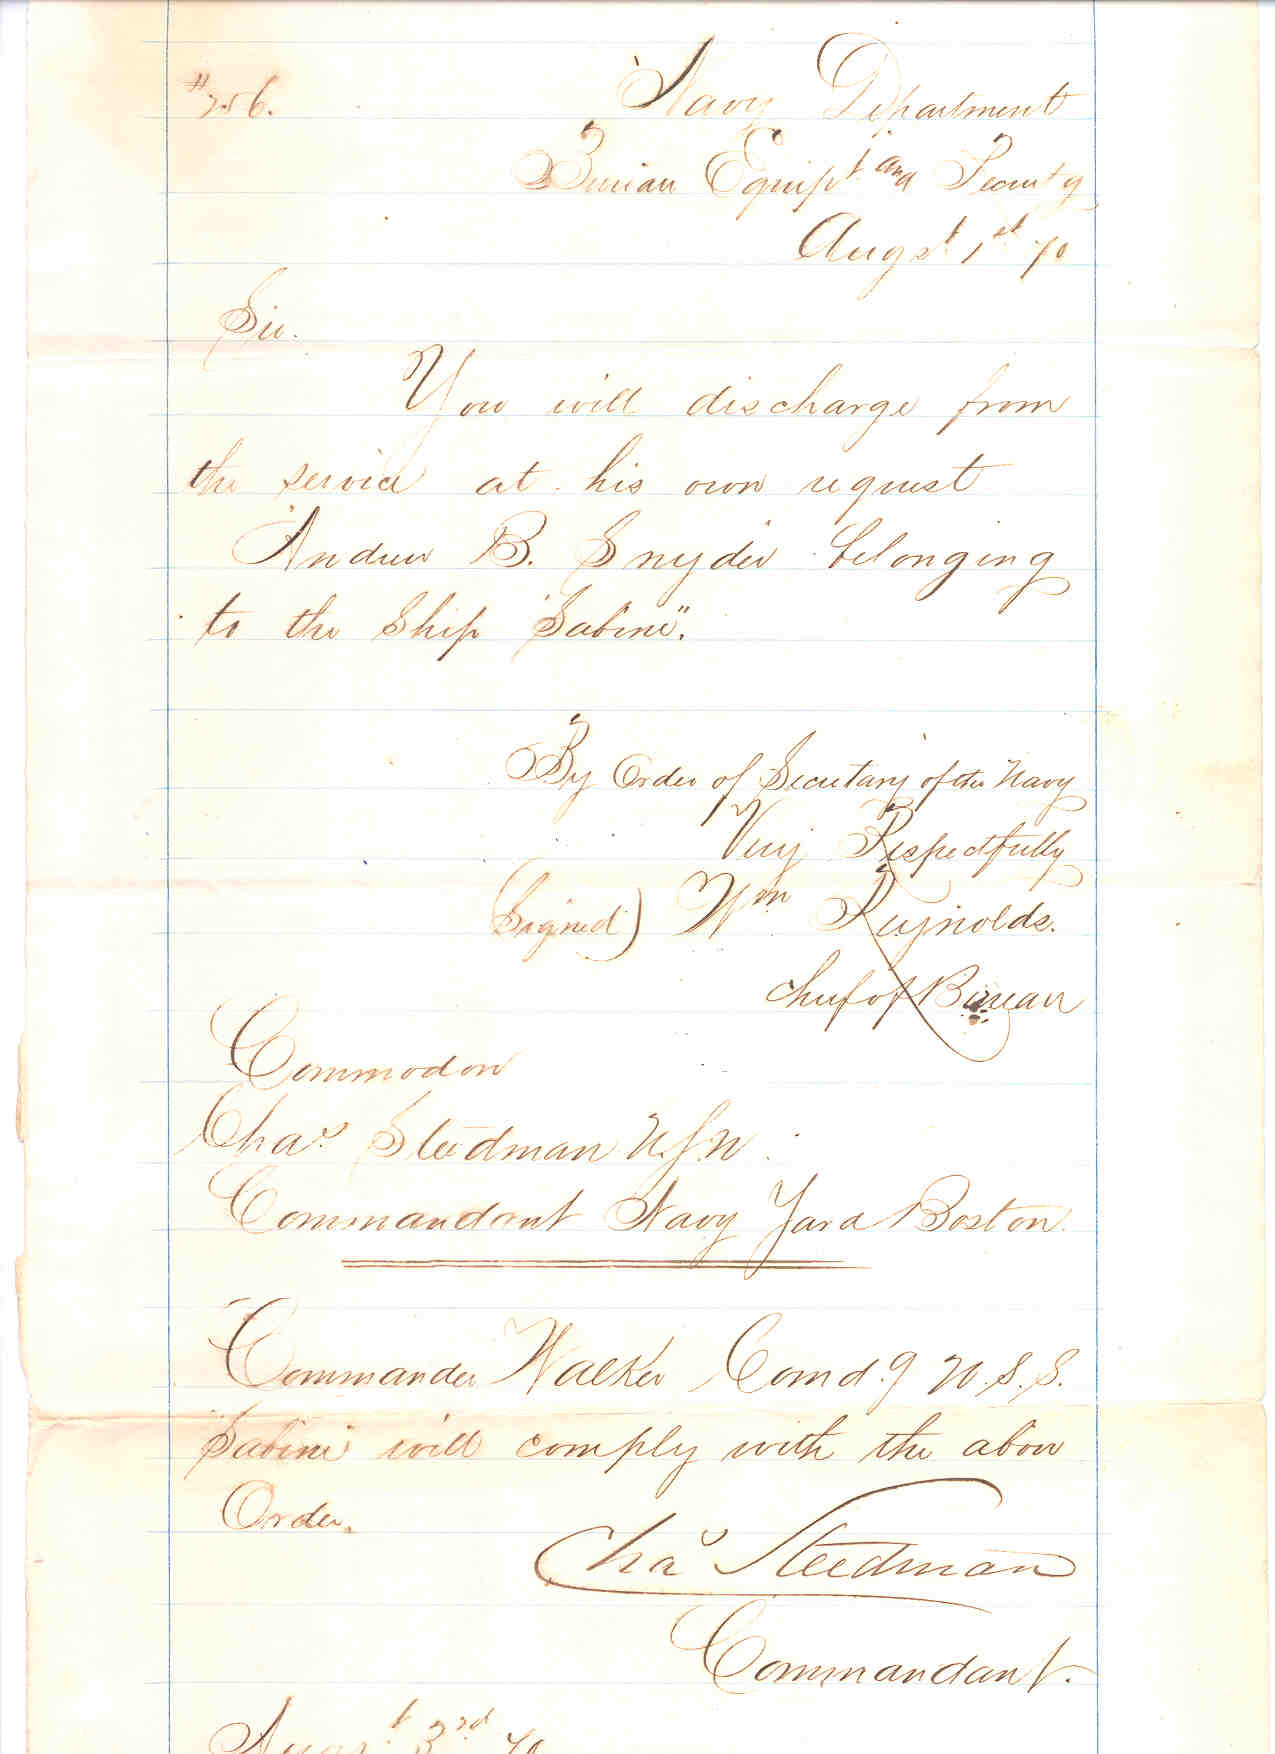 #256.
Navy Department
Bureau Equipt and Recruitg
Augst 1st 70
Sir.
You will discharge from
the service at his own request
Andrew B. Snyder belonging
to the Ship "Sabine".
By Order of Secretary of the Navy
Very Respectfully
(Signed) Wm Reynolds.
Chief of Bureau
Commodore
Chas Steedman U.S.N.
Commandant Navy Yard Boston.
Commander Walker Comd'g U.S.S.
Sabine will comply with the above
Order.
Chas Steedman
Commandant.
Augst 3rd 70